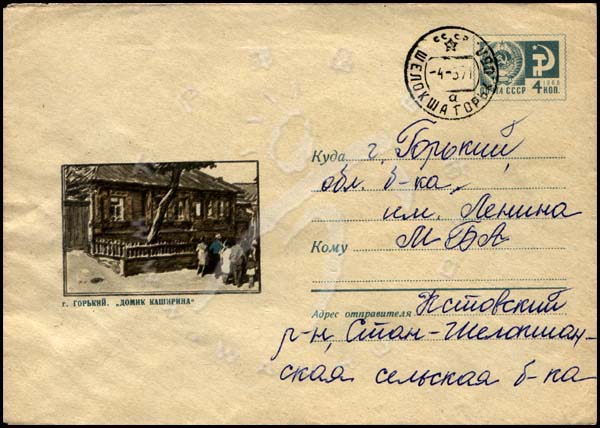 СССР
ШЕЛОКША ГОРЬК. ОБЛ.
-4-571
а
ПОЧТА СССР
1966
4 КОП.
Куда г. Горький,
обл. б-ка,
им. Ленина
Кому МБА
г. ГОРЬКИЙ. „ДОМИК КАШИРИНА“
Адрес отправителя Кстовский
р-н, Стан-Шелокшан-
ская сельская б-ка